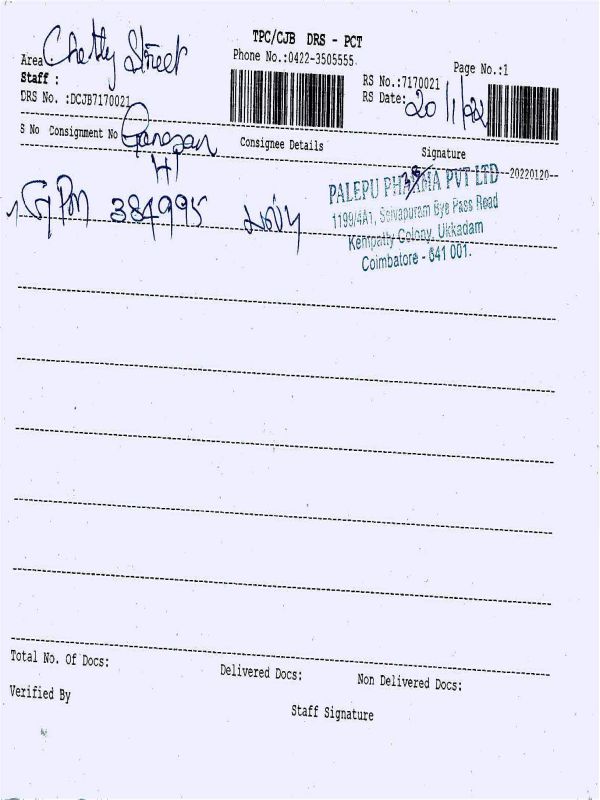 TPC/CJB DRS - PCT
Area Chetty Street
Phone No.:0422-3505555
Page No.:1
Staff :
RS No.:7170021
DRS No. :DCJB7170021
RS Date: 20/1/22
S No Consignment No
Consignee Details
Signature
--20220120--
PALEPU PHARMA PVT LTD
1199/4A1, Selvapuram Bye Pass Road
Kempatty Colony, Ukkadam
Coimbatore - 641 001.
384995
Total No. Of Docs:
Delivered Docs:
Non Delivered Docs:
Verified By
Staff Signature